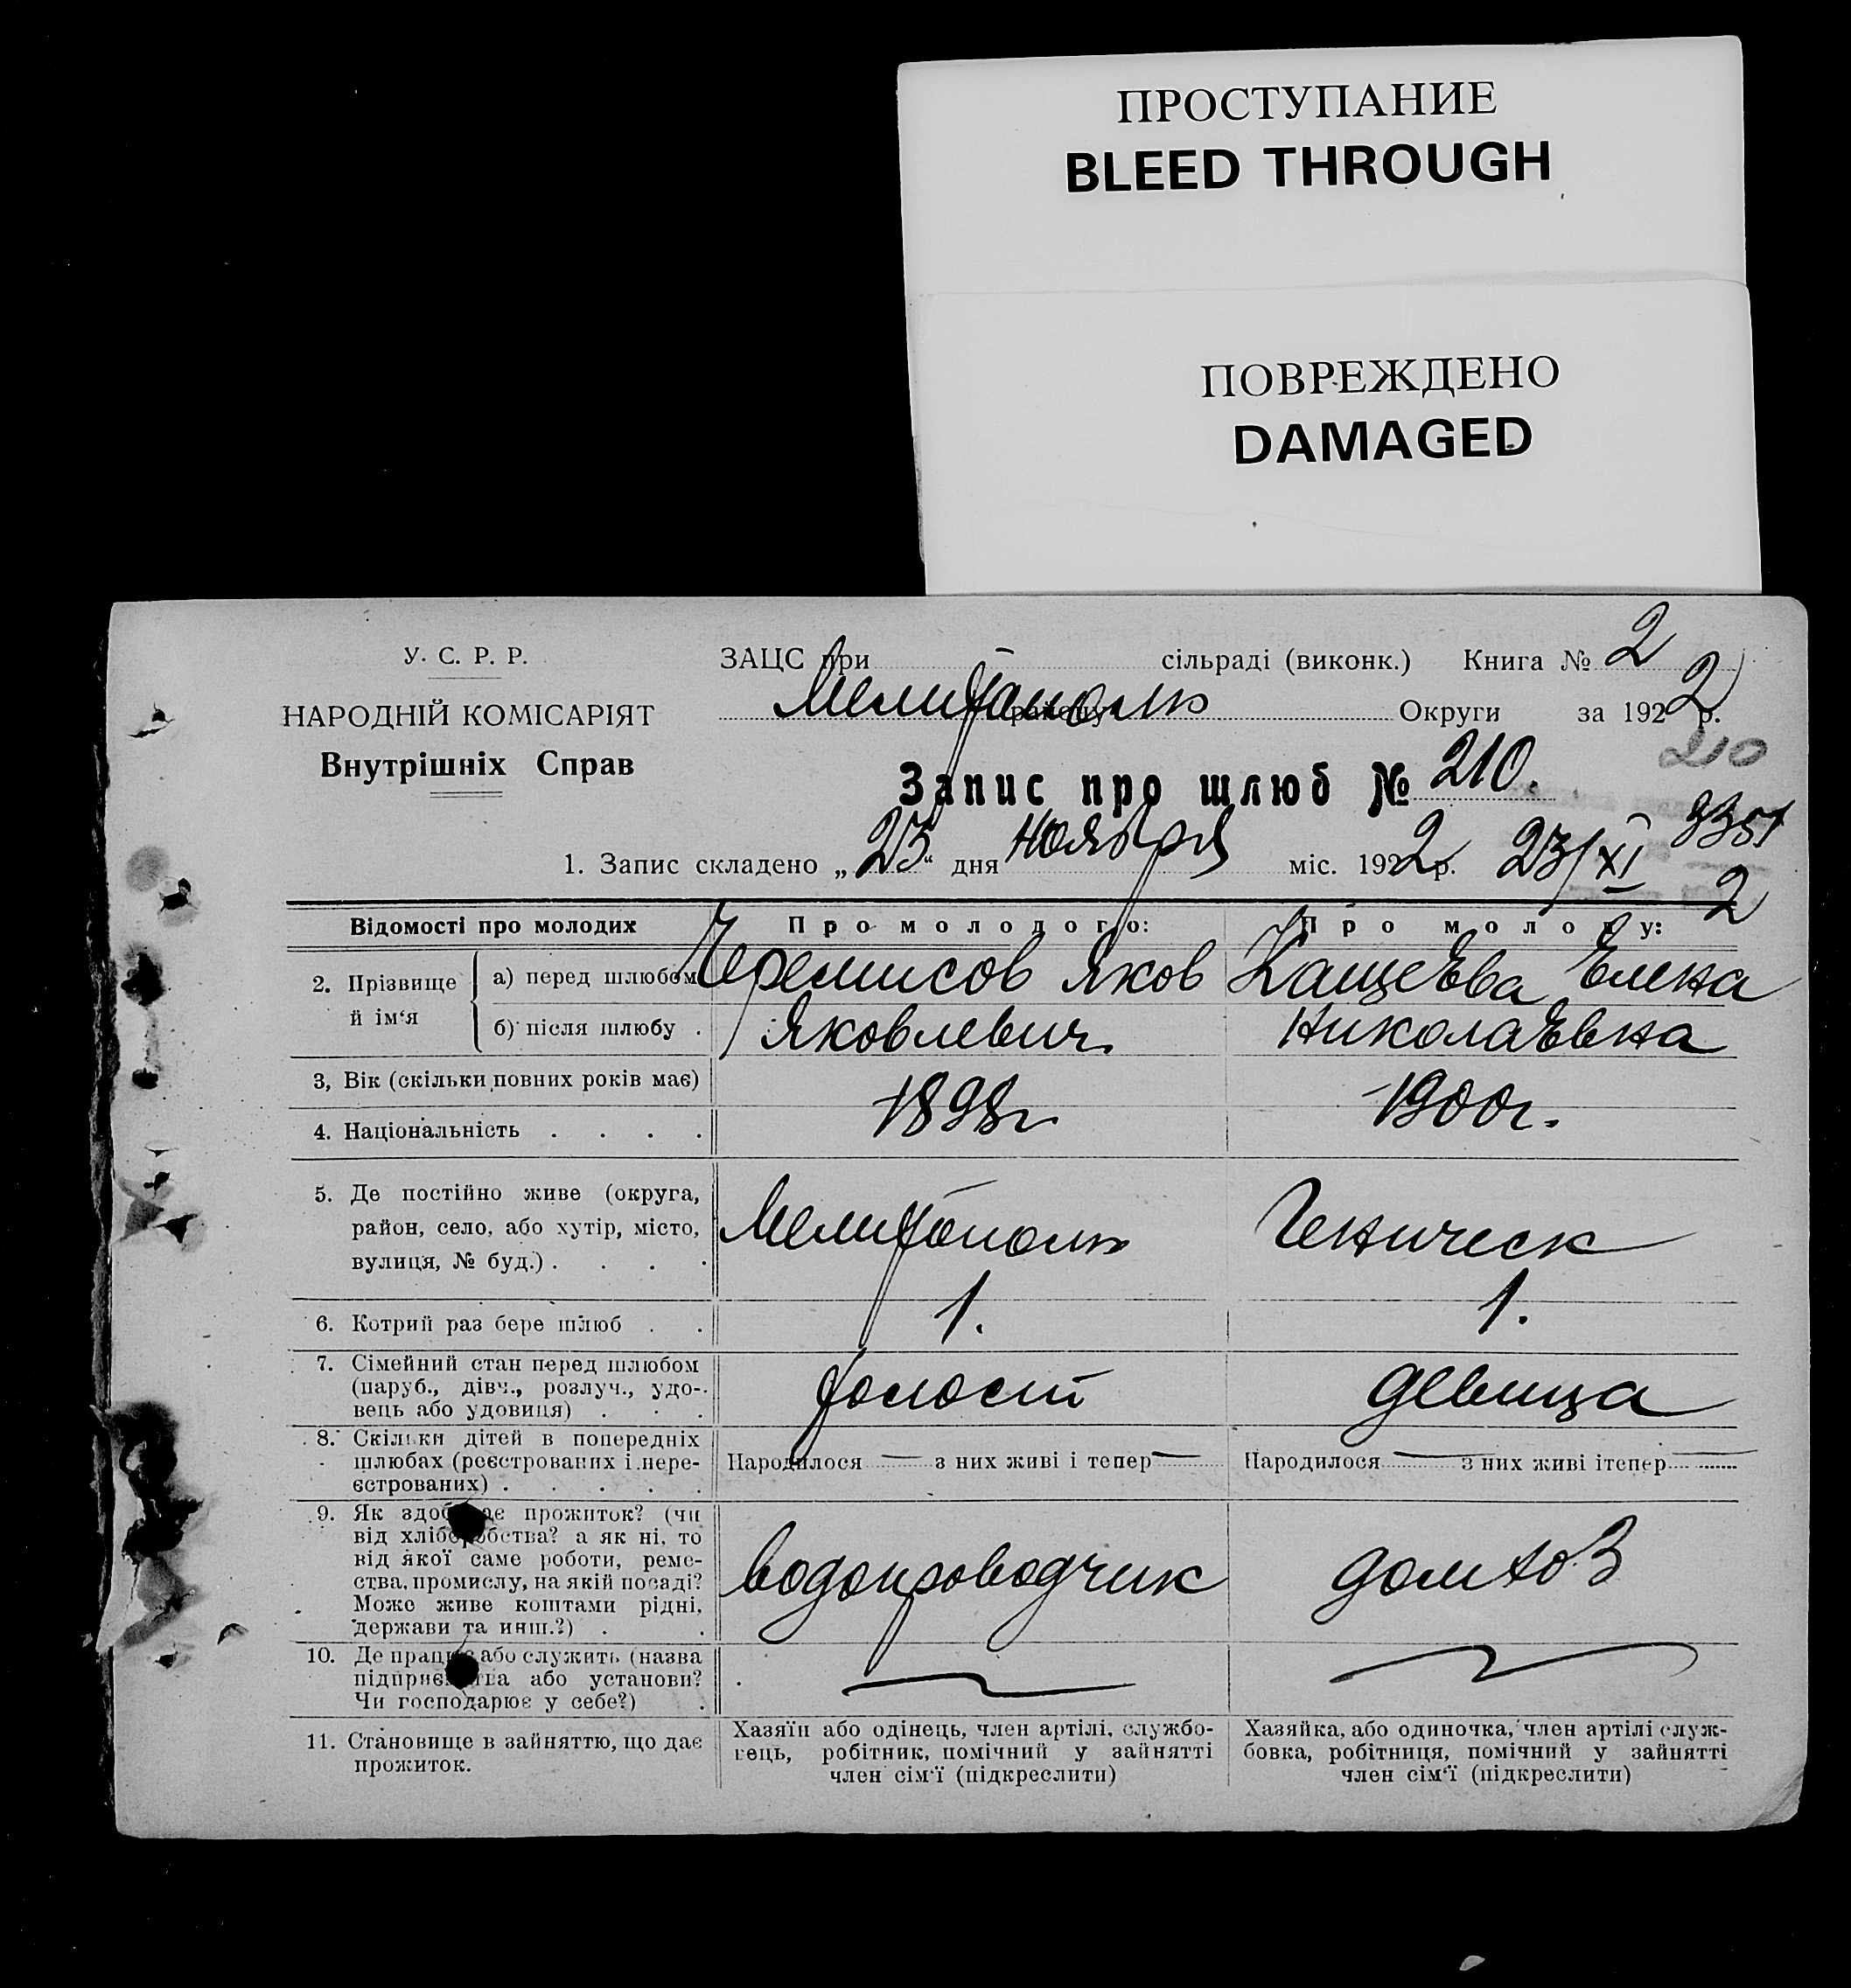 ПРОСТУПАНИЕ
BLEED THROUGH
ПОВРЕЖДЕНО
DAMAGED
У. С. Р. Р.
НАРОДНІЙ КОМІСАРІЯТ
Внутрішніх Справ
ЗАЦС при – сільраді (виконк.) Книга № 2
Мелитополь району Округи за 1922 р.
210
Запис про шлюб № 210.
1. Запис складено „23“ дня ноября міс. 1922 р. 23/XI
2
Відомості про молодих Про молодого: Про молоду:
2. Прізвище й ім‘я а) перед шлюбом Черемисов Яков Кащеева Елена
б) після шлюбу . Яковлевич Николаевна
3, Вік (скільки повних років має) 1898г 1900г.
4. Національність . . . .
5. Де постійно живе (округа,
район, село, або хутір, місто,
вулиця, № буд.) . . . . Мелитополь Геническ
6. Котрий раз бере шлюб . . 1. 1.
7. Сімейний стан перед шлюбом
(паруб., дівч., розлуч., удо-
вець або удовиця) . . . холост девица
8. Скільки дітей в попередніх
шлюбах (реєстрованих і нере-
єстрованих) . . . . . Народилося — з них живі і тепер — Народилося — з них живі ітепер —
9. Як здобуває прожиток? (чи
від хліборобства? а як ні, то
від якої саме роботи, реме-
ства, промислу, на якій посаді?
Може живе коштами рідні,
держави та инш.?) . . водопроводчик домхоз
10. Де працює або служить (назва
підприємства або установи?
Чи господарює у себе?) .
11. Становище в зайняттю, що дає
прожиток.
Хазяїн або одінець, член артілі, службо-
вець, робітник, помічний у зайнятті
член сім‘ї (підкреслити)
Хазяйка, або одиночка, член артілі служ-
бовка, робітниця, помічний у зайнятті
член сім‘ї (підкреслити)